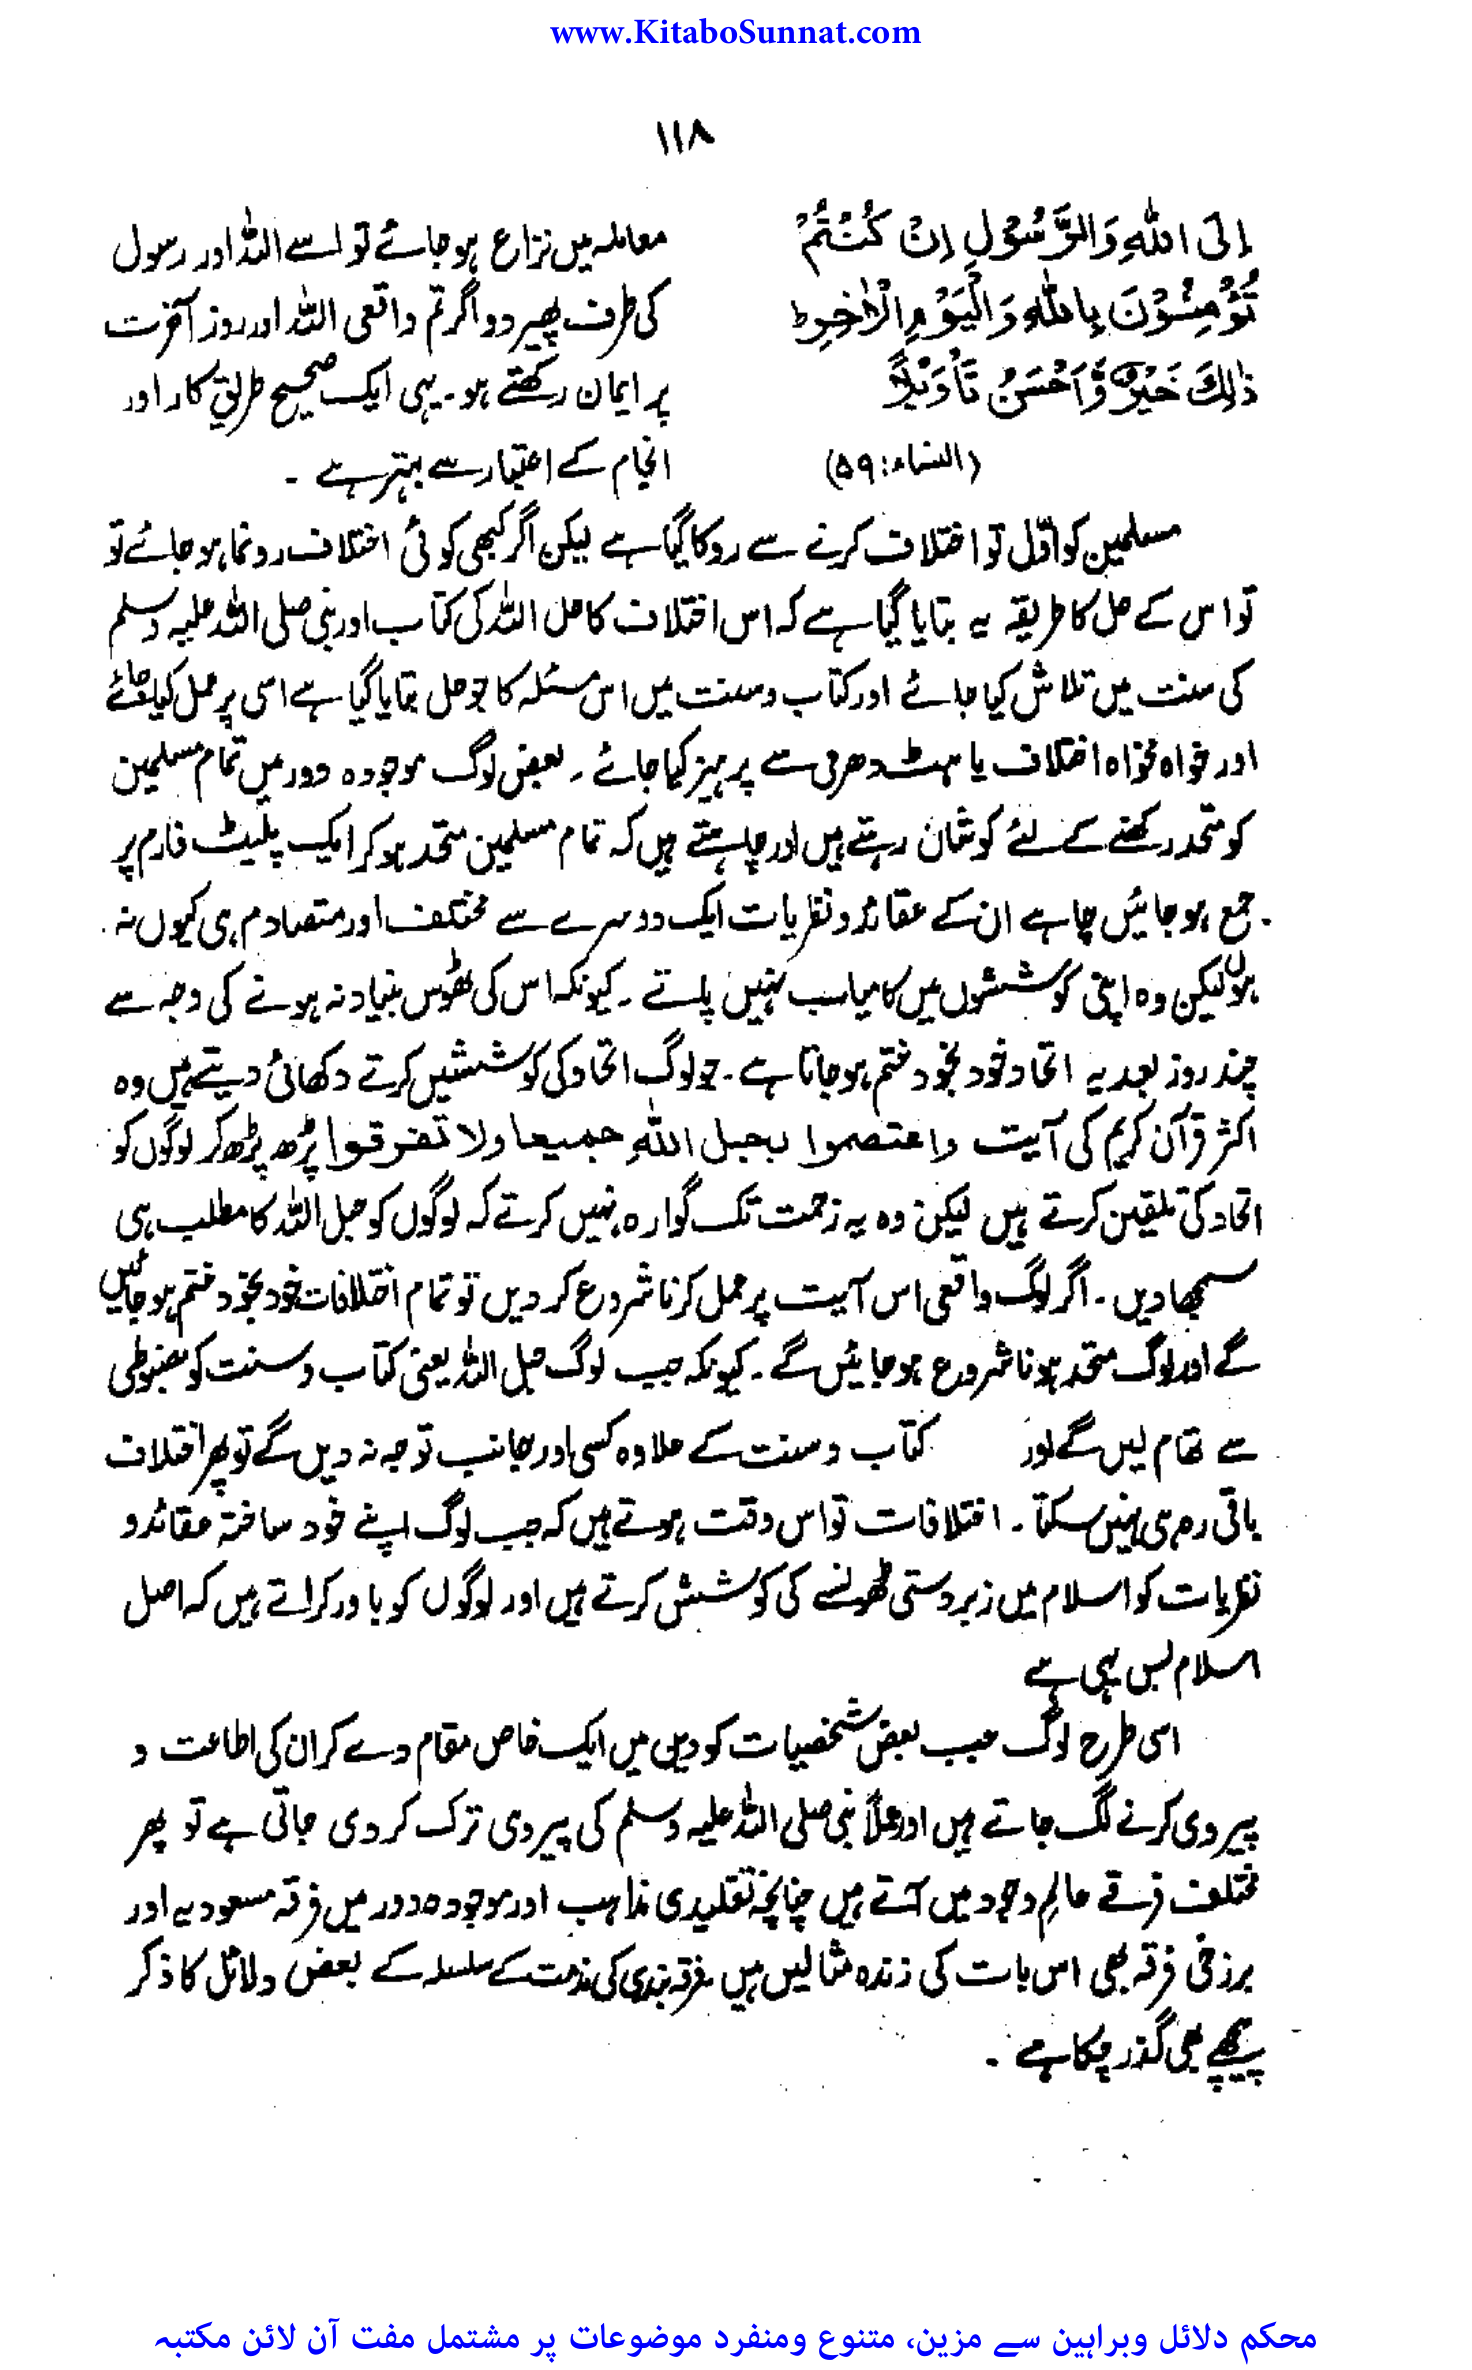 www.KitaboSunnat.com
۱۱۸
اِلَی اللّٰهِ وَالرَّسُوْلِ اِنْ كُنْتُمْ
تُؤْمِنُوْنَ بِاللّٰهِ وَالْیَوْمِ الْاٰخِرِ ط
ذٰلِكَ خَیْرٌ وَّاَحْسَنُ تَاْوِیْلًا
(النساء: ۵۹)
معاملہ میں نزاع ہو جائے تو اسے اللہ اور رسول
کی طرف پھیر دو اگر تم واقعی اللہ اور روز آخرت
پر ایمان رکھتے ہو۔ یہی ایک صحیح طریق کار اور
انجام کے اعتبار سے بہتر ہے ۔
مسلمین کو اوّل تو اختلاف کرنے سے روکا گیا ہے لیکن اگر کبھی کوئی اختلاف رونما ہو جائے تو
تو اس کے حل کا طریقہ یہ بتایا گیا ہے کہ اس اختلاف کا حل اللہ کی کتاب اور نبی صلی اللہ علیہ وسلم
کی سنت میں تلاش کیا جائے اور کتاب و سنت میں اس مسئلہ کا جو حل بتایا گیا ہے اسی پر عمل کیا جائے
اور خواہ مخواہ اختلاف یا ہٹ دھرمی سے پرہیز کیا جائے ۔ بعض لوگ موجودہ دور میں تمام مسلمین
کو متحد رکھنے کے لئے کوشاں رہتے ہیں اور چاہتے ہیں کہ تمام مسلمین متحد ہو کر ایک پلیٹ فارم پر
جمع ہو جائیں چاہے ان کے عقائد و نظریات ایک دوسرے سے مختلف اور متصادم ہی کیوں نہ
ہوں لیکن وہ اپنی کوششوں میں کامیاب نہیں پاتے ۔ کیونکہ اس کی ٹھوس بنیاد نہ ہونے کی وجہ سے
چند روز بعد یہ اتحاد خود بخود ختم ہو جاتا ہے ۔ جو لوگ اتحاد کی کوششیں کرتے دکھائی دیتے ہیں وہ
اکثر قرآن کریم کی آیت واعتصموا بحبل اللّٰہ جمیعا ولا تفرقوا پڑھ پڑھ کر لوگوں کو
اتحاد کی تلقین کرتے ہیں لیکن وہ یہ زحمت تک گوارہ نہیں کرتے کہ لوگوں کو حبل اللہ کا مطلب ہی
سمجھا دیں ۔ اگر لوگ واقعی اس آیت پر عمل کرنا شروع کر دیں تو تمام اختلافات خود بخود ختم ہو جائیں
گے اور لوگ متحد ہونا شروع ہو جائیں گے ۔ کیونکہ جب لوگ حبل اللہ یعنی کتاب و سنت کو مضبوطی
سے تھام لیں گے اور کتاب و سنت کے علاوہ کسی اور جانب توجہ نہ دیں گے تو پھر اختلاف
باقی رہ ہی نہیں سکتا ۔ اختلافات تو اس وقت ہوتے ہیں کہ جب لوگ اپنے خود ساختہ عقائد و
نظریات کو اسلام میں زبردستی ٹھونسنے کی کوشش کرتے ہیں اور لوگوں کو باور کراتے ہیں کہ اصل
اسلام بس یہی ہے
اسی طرح لوگ جب بعض شخصیات کو دین میں ایک خاص مقام دے کر ان کی اطاعت و
پیروی کرنے لگ جاتے ہیں اور عملاً نبی صلی اللہ علیہ وسلم کی پیروی ترک کر دی جاتی ہے تو پھر
مختلف فرقے عالمِ وجود میں آتے ہیں چنانچہ تقلیدی مذاہب اور موجودہ دور میں فرقہ مسعودیہ اور
برزخی فرقہ بھی اس بات کی زندہ مثالیں ہیں فرقہ بندی کی مذمت کے سلسلہ کے بعض دلائل کا ذکر
پیچھے بھی گذر چکا ہے ۔
محکم دلائل وبراہین سے مزین، متنوع ومنفرد موضوعات پر مشتمل مفت آن لائن مکتبہ